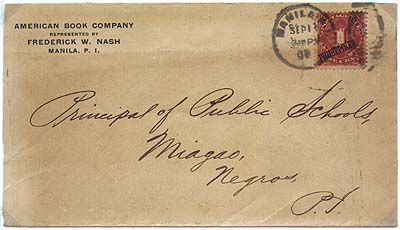 AMERICAN BOOK COMPANY
REPRESENTED BY
FREDERICK W. NASH
MANILA, P. I.
MANILA
SEP 1
PM
1
Principal of Public Schools,
Miagao,
Negros,
P.I.